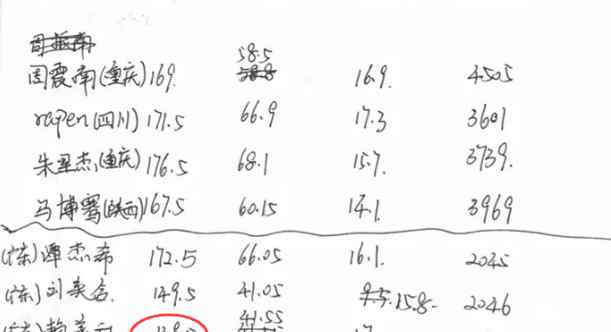 周震南(重庆) 169. 58.5 16.9. 4505
rapen(四川) 171.5 66.9 17.3 3601
朱星杰(重庆) 176.5 68.1 15.7. 3739.
马博骞(陕西) 167.5 60.15 14.1 3969
(广东)谭杰希 172.5 66.05 16.1. 2045
149.5 41.05 15.8- 2046
41.55